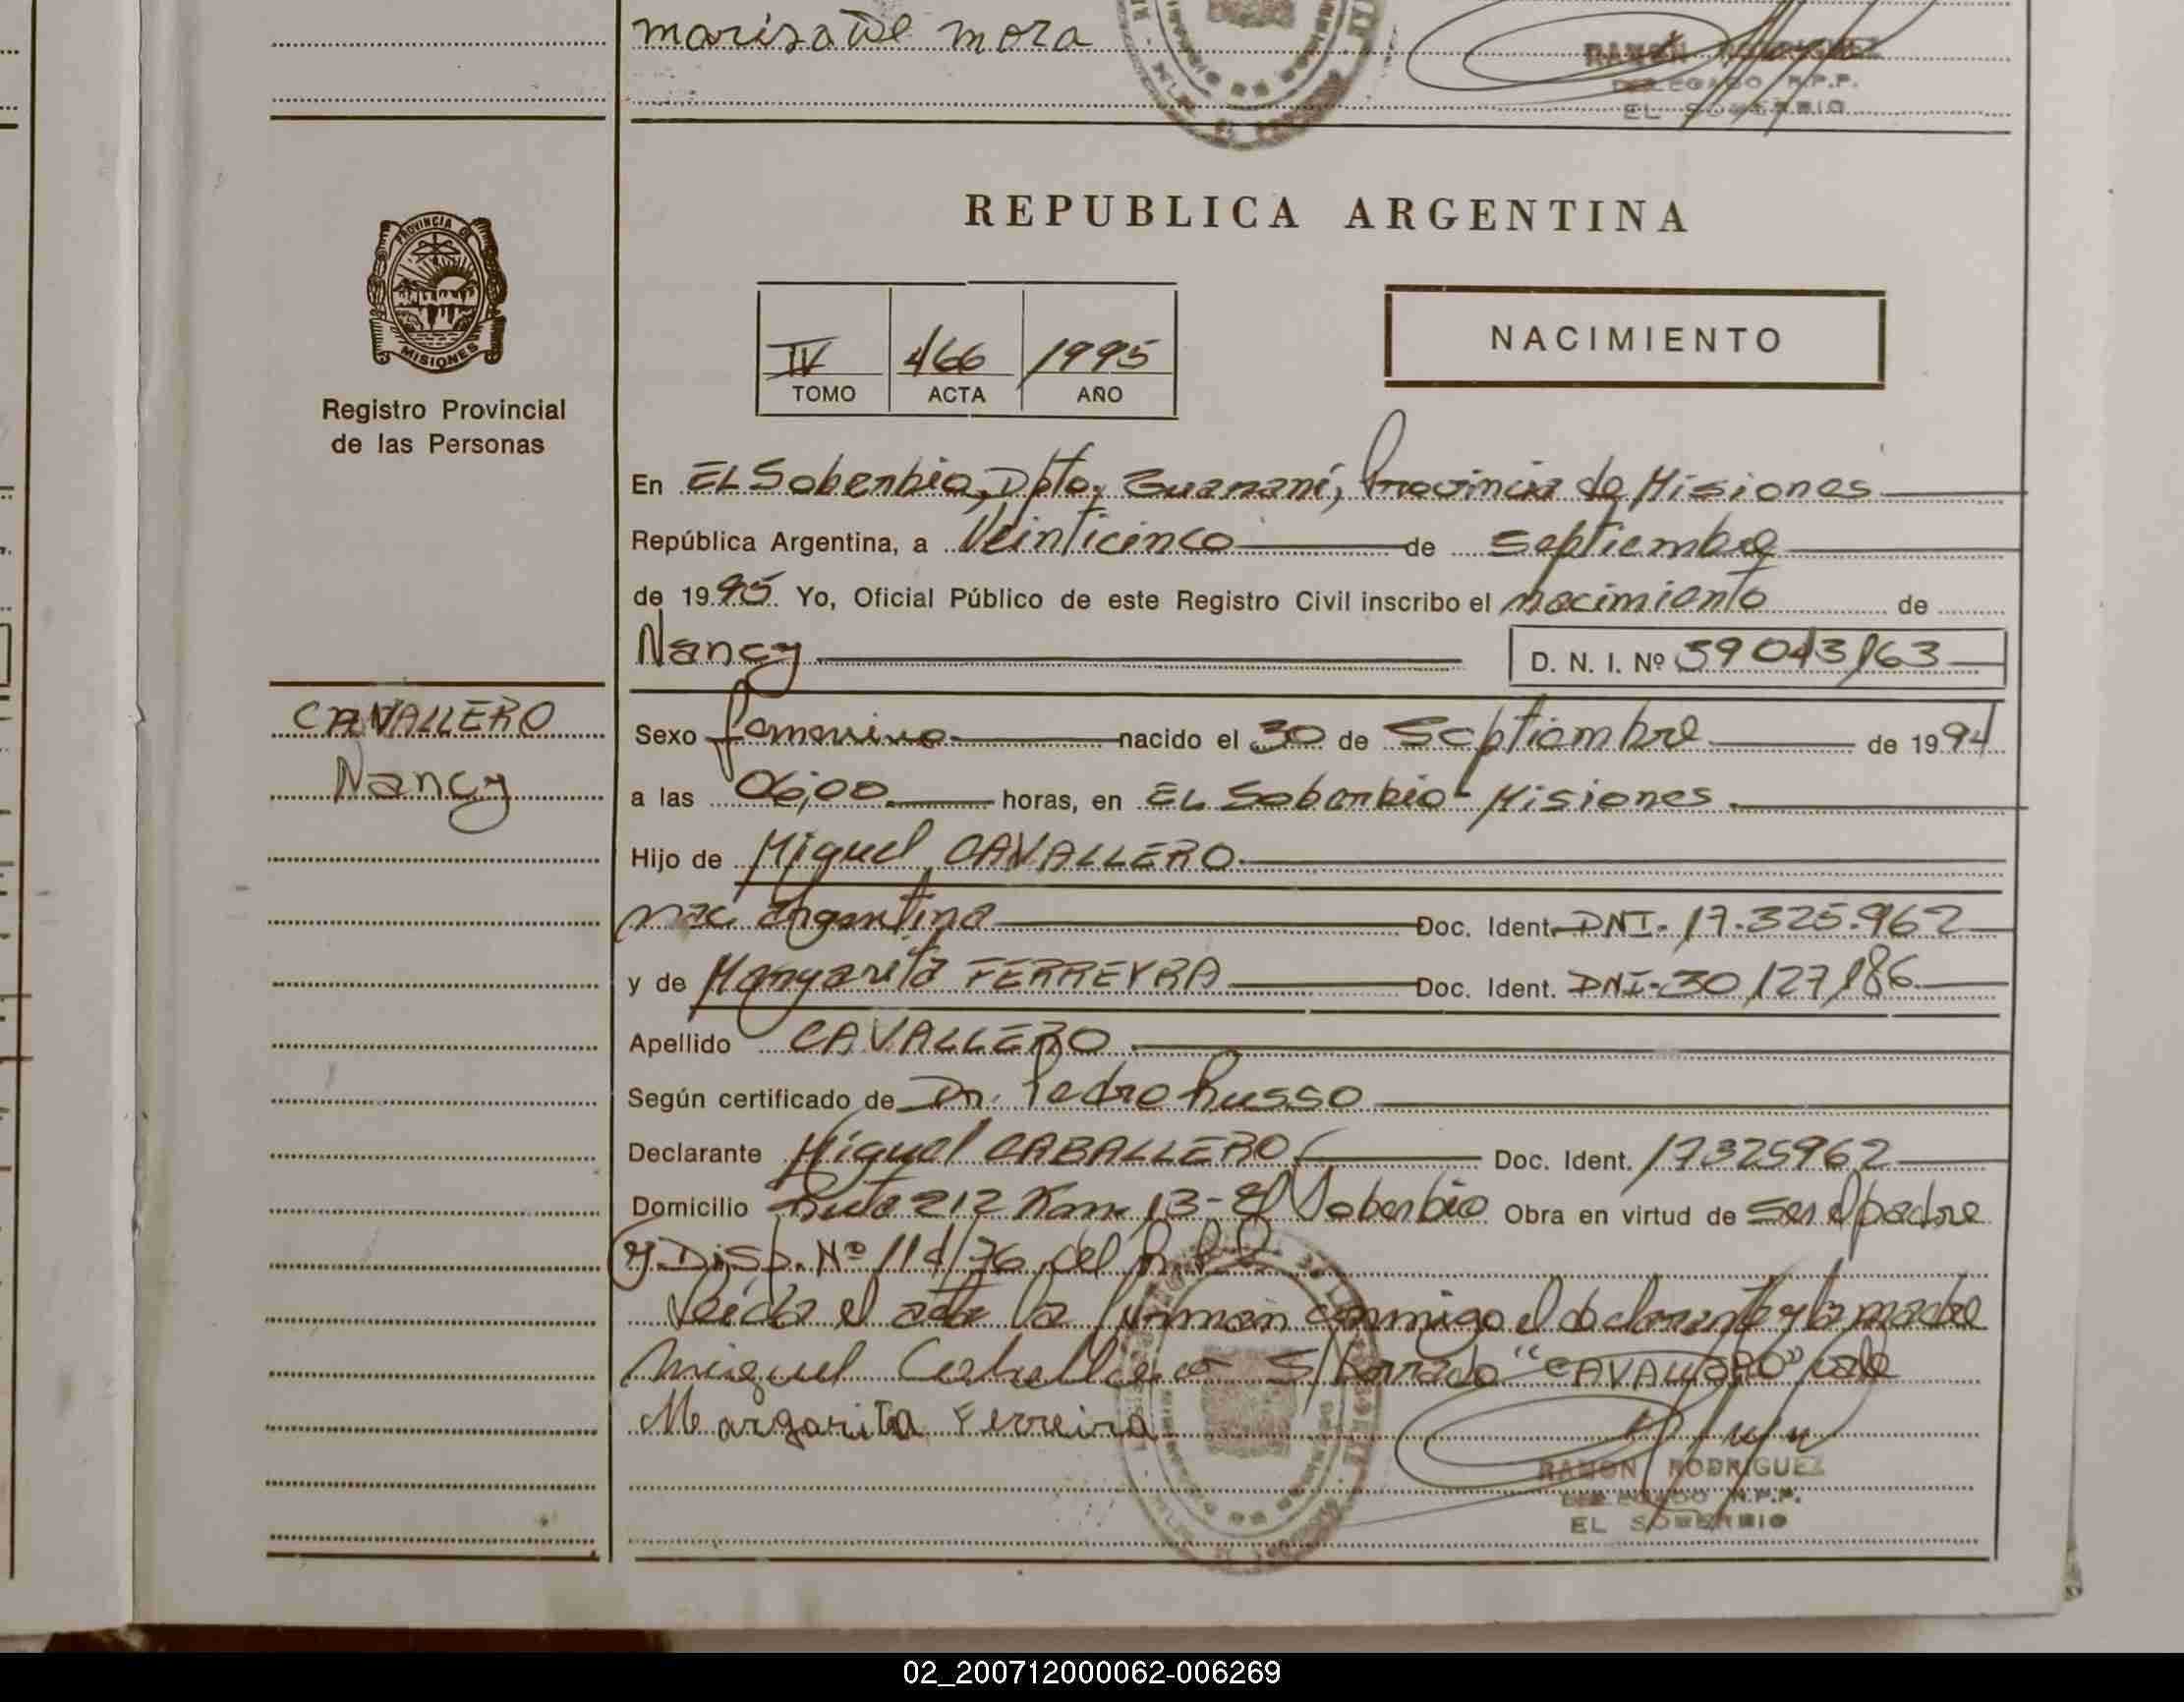 marisa de mora
RAMON RODRIGUEZ
DELEGADO R.P.P.
EL SOBERBIO
REPUBLICA ARGENTINA
PROVINCIA DE
MISIONES
Registro Provincial
de las Personas
IV 466 1995
TOMO ACTA AÑO
NACIMIENTO
En EL Soberbio, Dpto. Guaraní, Provincia de Misiones
República Argentina, a Veinticinco de Septiembre
de 1995 Yo, Oficial Público de este Registro Civil inscribo el nacimiento de
Nancy D. N. I. Nº 39043163
CAVALLERO
Nancy
Sexo femenino nacido el 30 de Septiembre de 1994
a las 06,00 horas, en EL Soberbio - Misiones
Hijo de Miguel CAVALLERO
nac. argentina Doc. Ident. DNI. 17.325.962
y de Margarita FERREYRA Doc. Ident. DNI-30127186
Apellido CAVALLERO
Según certificado de Dr. Pedro Russo
Declarante Miguel CABALLERO Doc. Ident. 17325962
Domicilio Ruta 212 Km. 13 - El Soberbio Obra en virtud de ser el padre
y Disp. Nº 114/76 del R.P.P.
Leída el acta la firman conmigo el declarante y la madre
Miguel Caballero S/borrado "CAVALLERO" vale
Margarita Ferreira
RAMON RODRIGUEZ
DELEGADO R.P.P.
EL SOBERBIO
02_200712000062-006269